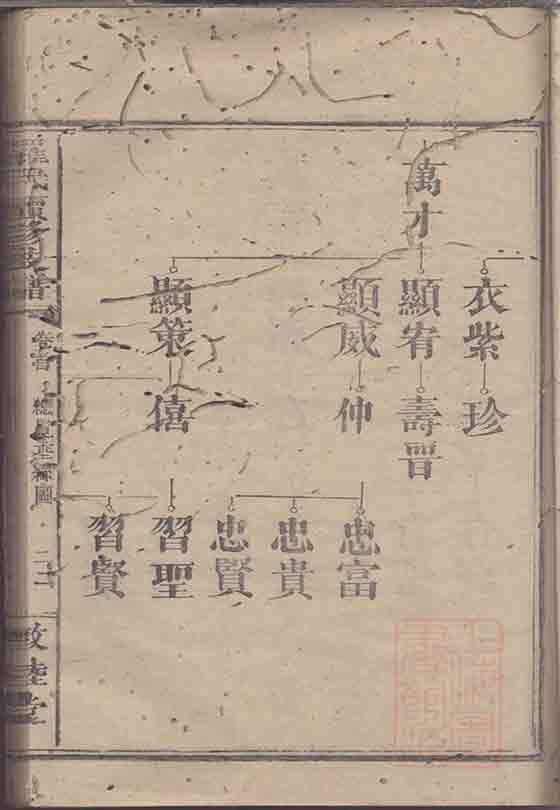 萬才
衣紫
顯宥
顯威
顯策
珍
壽晋
仲
僖
忠富
忠貴
忠賢
習聖
習賢
氏續修支譜
卷首
圖
二
敦睦堂